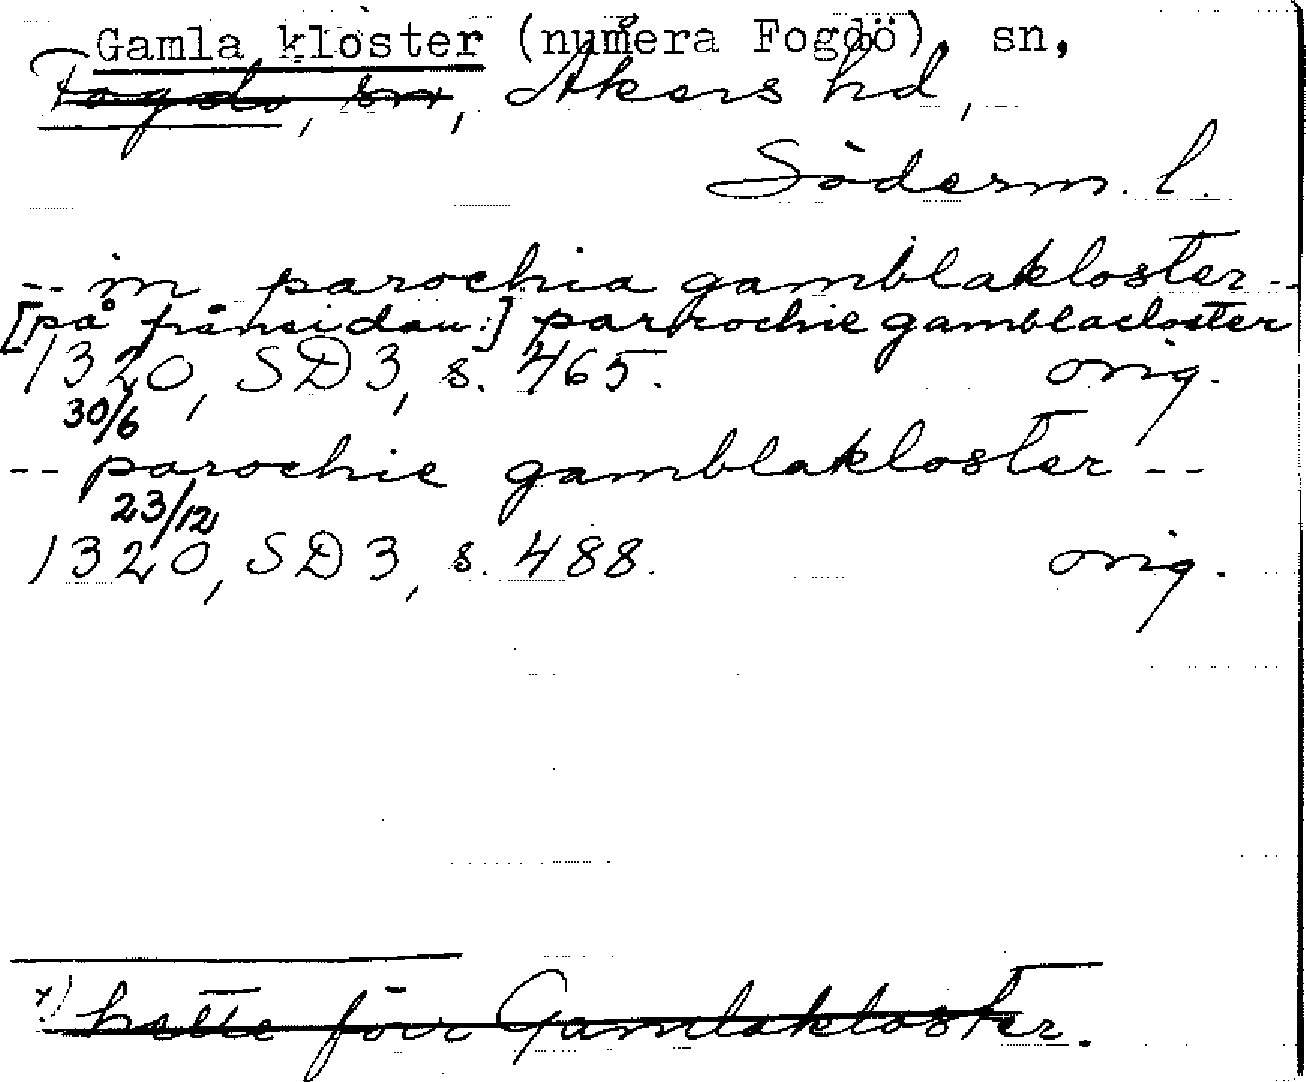 Gamla kloster (numera Fogdö), sn,
Fogdö, sn, Åkers hd,
Söderm. l.
-- in parochia gamblakloster --
[på frånsidan:] parrochie gamblacloster
1320, SD 3, s. 465. orig.
30/6
-- parochie gamblakloster --
23/12
1320, SD 3, s. 488. orig.
x) hette förr Gamlakloster.